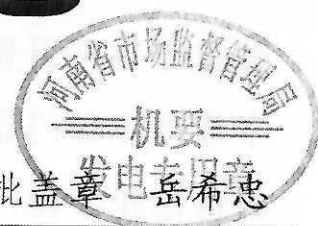 河南省市场监督管理局
机要
发电专用章
批盖章 岳希忠